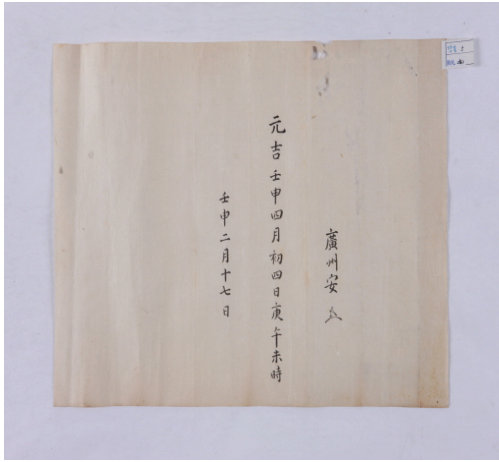 廣州安
元吉壬申四月初四日庚午未時
壬申二月十七日